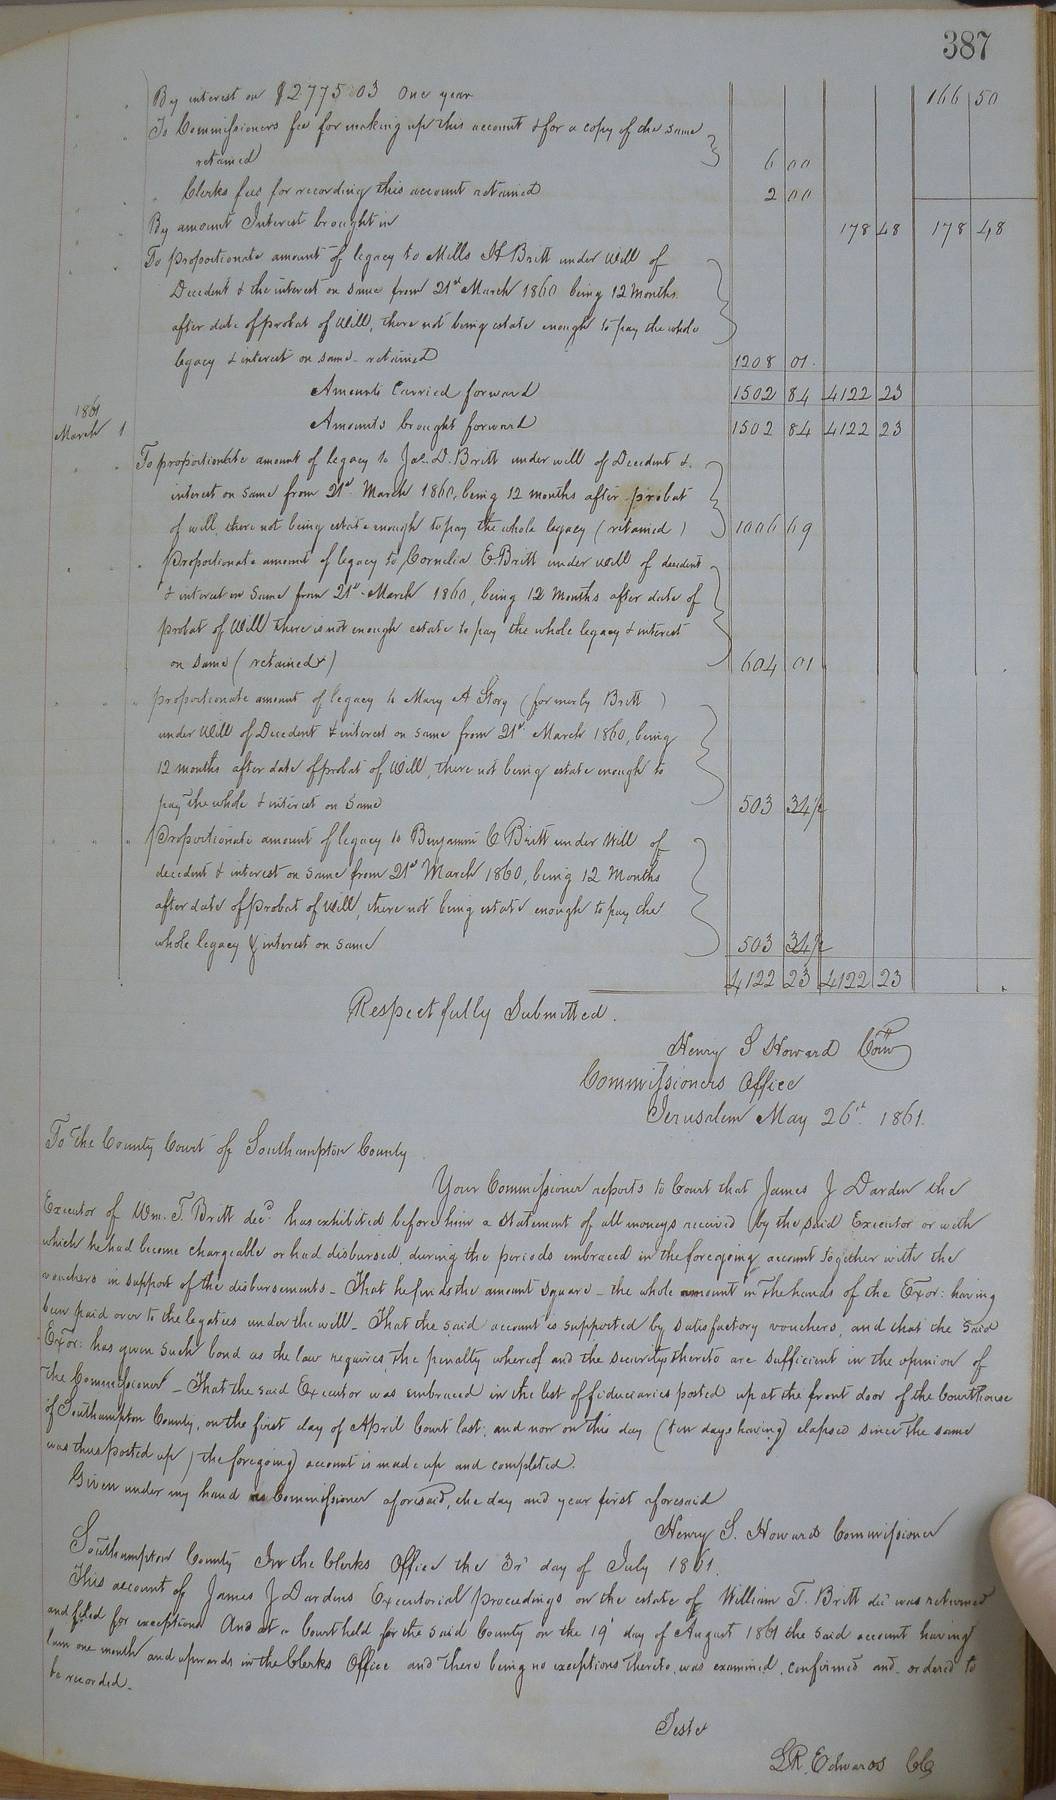 387
By interest on $2775 03 One year 166 50
To Commissioners fee for making up this account & for a copy of the same
retained 6 00
" Clerks fees for recording this account retained 2 00
By amount Interest brought in 178 48 178 48
To proportionate amount of legacy to Mills H Britt under Will of
Decedent & the interest on same from 21st March 1860 being 12 Months
after date of probat of Will, there not being estate enough to pay the whole
legacy & interest on same - retained 1208 01
Amounts Carried forward 1502 84 4122 23
1861
March 1 Amounts brought forward 1502 84 4122 23
To proportionate amount of legacy to Jas. D. Britt under will of Decedent &
interest on same from 21st March 1860, being 12 months after probat
of will, there not being estate enough to pay the whole legacy (retained) 1006 69
" proportionate amount of legacy to Cornelia E. Britt under will of decedent
& interest on same from 21st March 1860, being 12 Months after date of
probat of Will there is not enough estate to pay the whole legacy & interest
on same (retained) 604 01
" proportionate amount of legacy to Mary A Story (formerly Britt)
under Will of Decedent & interest on same from 21st March 1860, being
12 months after date of probat of Will, there not being estate enough to
pay the whole & interest on same 503 34½
" proportionate amount of legacy to Benjamin C Britt under Will of
decedent & interest on same from 21st March 1860, being 12 Months
after date of probat of Will, there not being estate enough to pay the
whole legacy & interest on same 503 34½
4122 23 4122 23
Respectfully Submitted.
Henry S Howard Comr
Commissioners Office
Jerusalem May 26th 1861.
To the County Court of Southampton County
Your Commissioner reports to Court that James J Darden the
Executor of Wm. T. Britt decd. has exhibited before him a statement of all moneys received by the said Executor or with
which he had become chargeable or had disbursed, during the periods embraced in the foregoing account together with the
vouchers in support of the disbursements - That he finds the amount square - the whole amount in the hands of the Exor: having
been paid over to the legatees under the will - That the said account is supported by satisfactory vouchers, and that the said
Exor: has given such bond as the law requires, the penalty whereof and the security thereto are sufficient in the opinion of
the Commissioner - That the said Executor was embraced in the list of fiduciaries posted up at the front door of the Courthouse
of Southampton County, on the first day of April Court last, and now on this day (ten days having) elapsed since the same
was thus posted up) the foregoing account is made up and completed.
Given under my hand as Commissioner aforesaid, the day and year first aforesaid
Henry S. Howard Commissioner
Southampton County In the Clerks Office the 3rd day of July 1861.
This account of James J Dardens Executorial proceedings on the estate of William T. Britt decd was returned
and filed for exceptions And at a Court held for the said County on the 19th day of August 1861 the said account having
lain one month and upwards in the Clerks Office and there being no exceptions thereto, was examined, confirmed and ordered to
be recorded.
Teste
L.R. Edwards CC